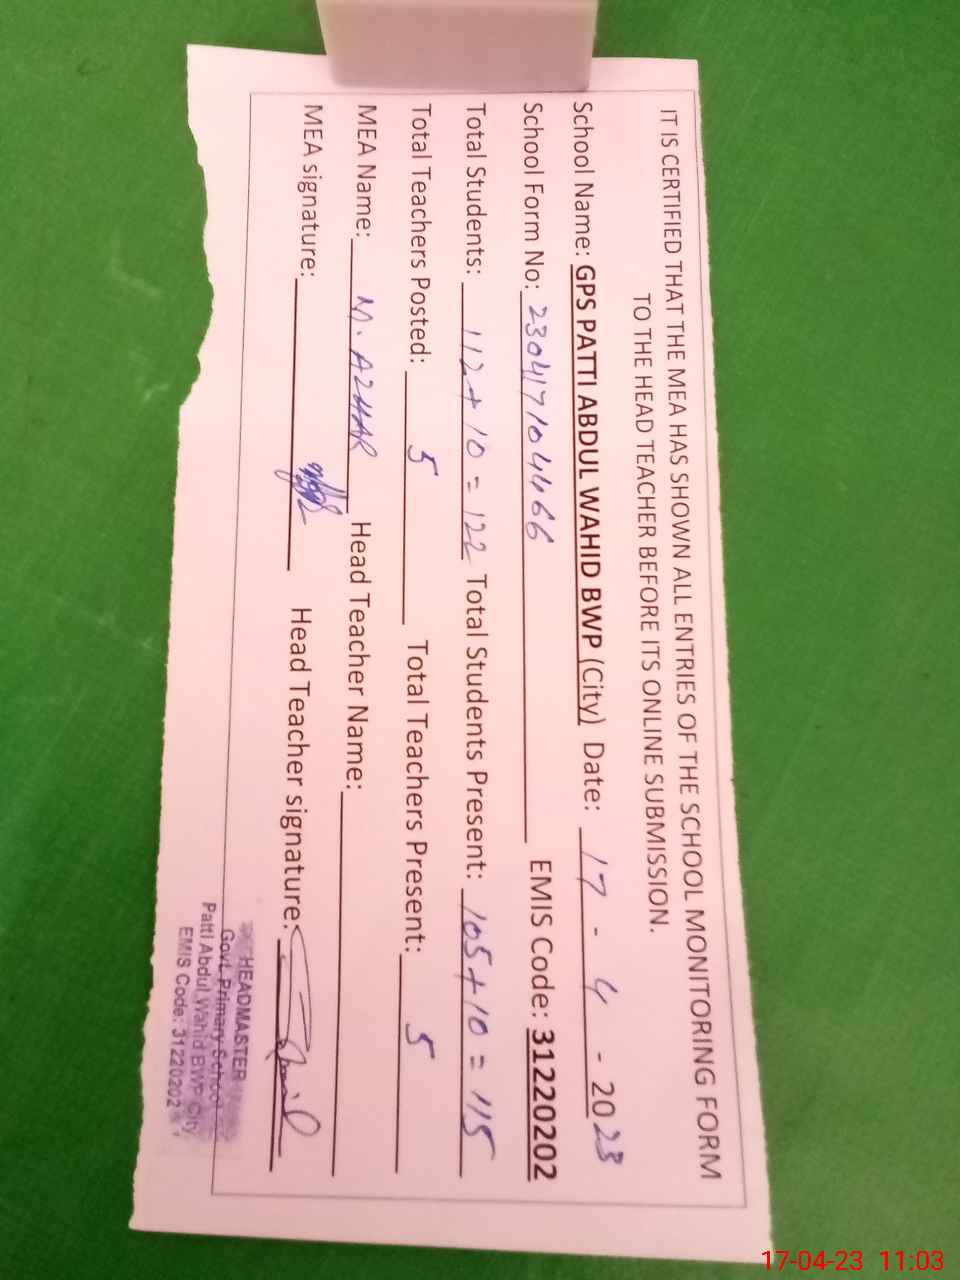 IT IS CERTIFIED THAT THE MEA HAS SHOWN ALL ENTRIES OF THE SCHOOL MONITORING FORM
TO THE HEAD TEACHER BEFORE ITS ONLINE SUBMISSION.
School Name: GPS PATTI ABDUL WAHID BWP (City) Date: 17 - 4 - 2023
School Form No: 230417104466 EMIS Code: 31220202
Total Students: 112 + 10 = 122 Total Students Present: 105 + 10 = 115
Total Teachers Posted: 5 Total Teachers Present: 5
MEA Name: M. AZHAR Head Teacher Name:
MEA signature: Head Teacher signature:
HEADMASTER
Govt. Primary School
Patti Abdul Wahid BWP City
EMIS Code: 31220202
17-04-23 11:03